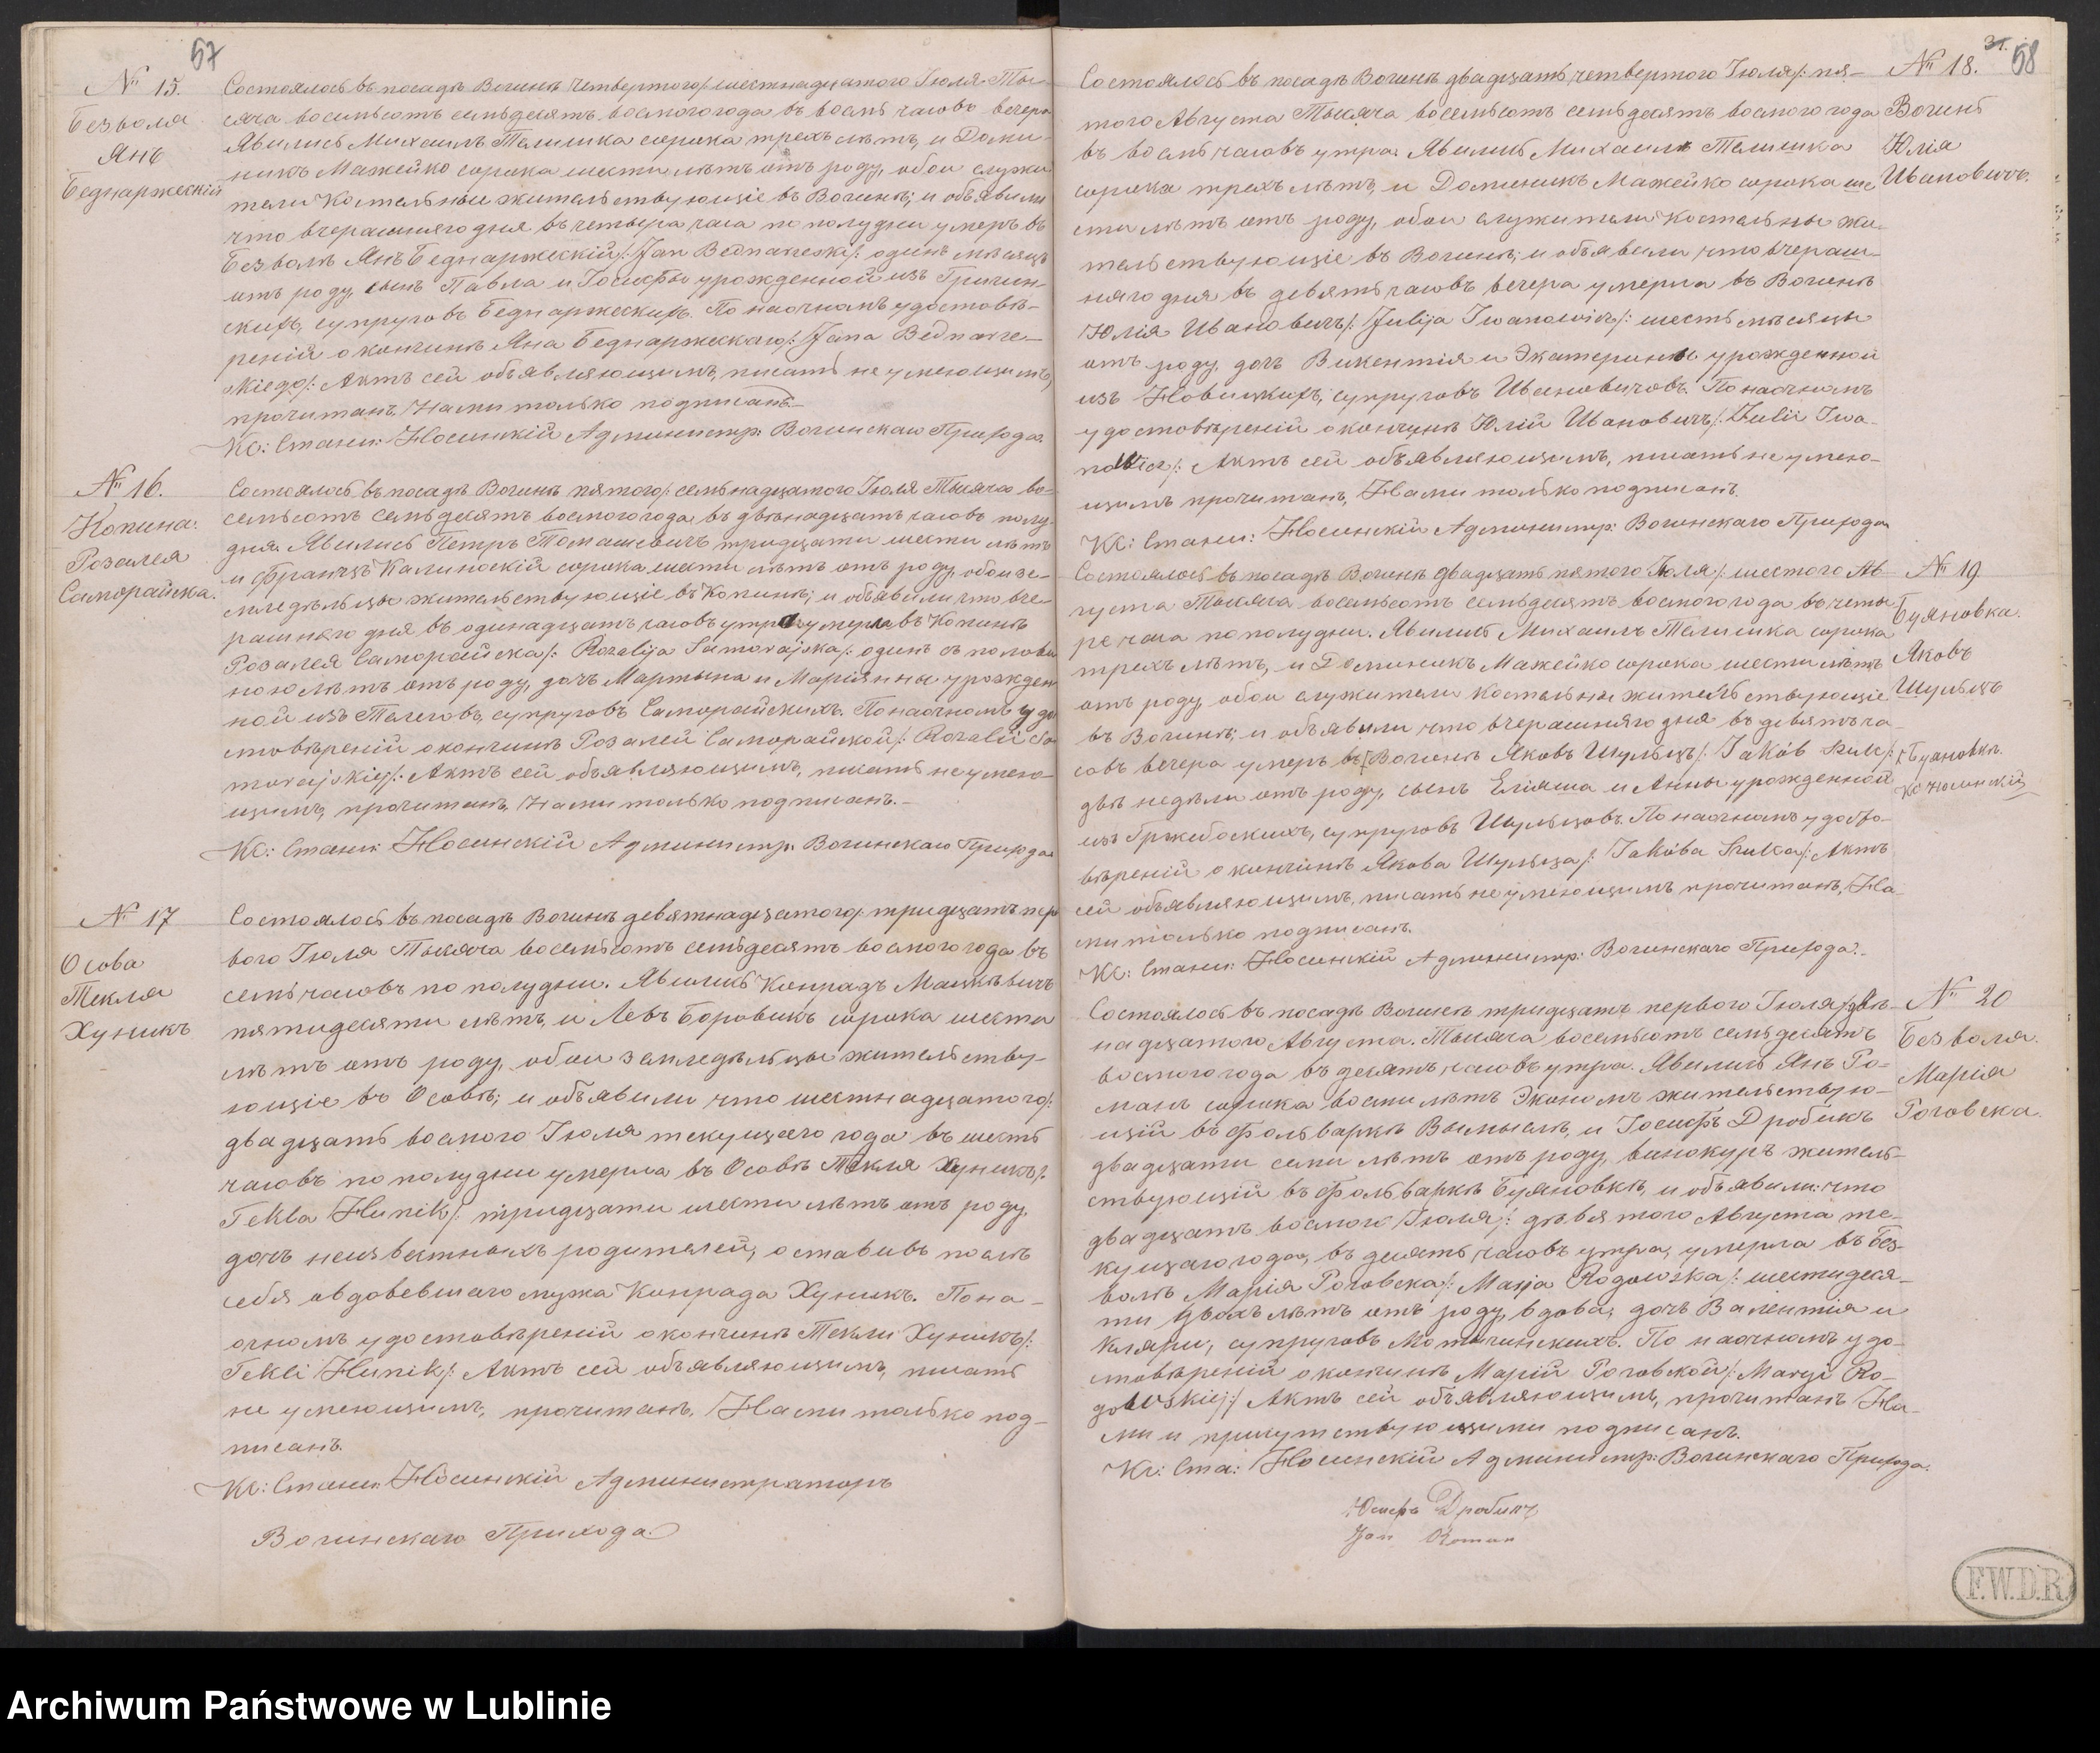 57
№ 15.
Безволя
Янъ
Беднаржескій
Состоялось въ посадѣ Вогинѣ четвертого/: шестнадцатого Іюля Ты-
сяча восемьсотъ семьдесятъ восмого года въ восмь часовъ вечера
Явились Михаилъ Телишка сорока трехъ лѣтъ, и Доми-
никъ Мажейко сорока шести лѣтъ отъ роду, обои служи
тели Костельные жительствующіе въ Вогинѣ; и объявили
что вчерашняго дня въ четыре часа по полудни умеръ въ
Безволѣ Янъ Беднаржескій/: Jan Bednarzeski/: одинъ мѣсяцъ
отъ роду, сынъ Павла и Іосифы урожденной изъ
скихъ, супруговъ Беднаржескихъ. По наочномъ удостовѣ-
реніи о кончинѣ Яна Беднаржескаго/: Jana Bednarze-
skiego/: Актъ сей объявляющимъ, писать не умеющимъ,
прочитанъ, Нами только подписанъ.-
Кс: Стани: Носинскій Администр: Вогинскаго Прихода.
№ 16.
Копина:
Розалея
Саморайска.
Состоялось въ посадѣ Вогинѣ пятого/: семьнадцатого Іюля Тысяча во-
семьсотъ семьдесятъ восмого года, въ двѣнадцать часовъ полу
дня. Явились Петръ Томашевичъ тридцати шести лѣтъ
и Францъ Калиноскій сорока шести лѣтъ отъ роду, обои зе-
мледѣльцы жительствующіе въ Копинѣ; и объявили что вче-
рашняго дня въ одинадцать часовъ утра умерла въ Копинѣ
Розалея Саморайска/: Rozalija Samorajska/: одинъ съ полови
ною лѣтъ отъ роду, дочь Мартына и Маріянны урожден
ной изъ Телеговъ, супруговъ Саморайскихъ. По наочномъ удо
стовѣреніи о кончинѣ Розалеи Саморайской/: Rozalii Sa
morajskiej/: Актъ сей объявляющимъ, писать не умею-
щимъ, прочитанъ, Нами только подписанъ.-
Кс: Стани: Носинскій Администр: Вогинскаго Прихода
№ 17
Осова
Текля
Хуникъ
Состоялось въ посадѣ Вогинѣ девятнадцатого/: тридцать пер
вого Іюля Тысяча восемьсотъ семьдесятъ восмого года въ
семь часовъ по полудни. Явились Конрадъ Мацкѣвичъ
пятидесяти лѣтъ, и Левъ Боровикъ сорока шести
лѣтъ отъ роду, обои земледѣльцы жительству-
ющіе въ Осовѣ; и объявили что шестнадцатого/:
двадцать восмого Іюля текущаго года въ шесть
часовъ по полудни умерла въ Осовѣ Текля Хуникъ/:
Tekla Hunik/: тридцати шести лѣтъ отъ роду,
дочь неизвестныхъ родителей, оставивъ послѣ
себя овдовевшаго мужа Конрада Хуникъ. По на-
очномъ удостовѣреніи о кончинѣ Текли Хуникъ/:
Tekli Hunik/: Актъ сей объявляющимъ, писать
не умеющимъ, прочитанъ. Нами только под-
писанъ.
Кс: Стани: Носинскій Администраторъ
Вогинскаго Прихода.
31.
58
№ 18.
Вогинѣ
Юлія
Ивановичъ.
Состоялось въ посадѣ Вогинѣ двадцать четвертого Іюля/: пя-
того Августа Тысяча восемьсотъ семьдесятъ восмого года
въ восмь часовъ утра. Явились Михаилъ Телишка
сорока трехъ лѣтъ, и Доминикъ Мажейко сорока ше
сти лѣтъ отъ роду, обои служители костельны жи-
тельствующіе въ Вогинѣ; и объявили что вчераш-
няго дня въ девять часовъ вечера умерла въ Вогинѣ
Юлія Ивановичъ/: Julija Iwanowicz/: шесть мѣсяцы
отъ роду, дочь Викентія и Экатерины урожденной
изъ Новицкихъ, супруговъ Ивановичовъ. По наочномъ
удостовѣреніи о кончинѣ Юліи Ивановичъ/: Julii Iwa-
nowicz/: Актъ сей объявляющимъ, писать не умею-
щимъ прочитанъ, Нами только подписанъ.
Кс: Стани: Носинскій Администр: Вогинскаго Прихода
№ 19
Буяновка.
Яковъ
Шульцъ
Состоялось въ посадѣ Вогинѣ двадцать пятого Іюля/: шестого Ав-
густа Тысяча восемьсотъ семьдесятъ восмого года въ четы
ре часа по полудни. Явились Михаилъ Телишка сорока
трехъ лѣтъ, и Доминикъ Мажейко сорока шести лѣтъ
отъ роду, обои служители костельны жительствующіе
въ Вогинѣ; и объявили что вчерашняго дня въ девять ча-
совъ вечера умеръ въ Вогинѣ Яковъ Шульцъ/: Jakób Szulc/:
Буяновкѣ.
Кс Носинскій
двѣ недѣли отъ роду, сынъ Еліяша и Анны урожденной
изъ Гржебоскихъ, супруговъ Шульцовъ. По наочномъ удосто-
вѣреніи о кончинѣ Якова Шульца/: Jakóba Szulca/: Актъ
сей объявляющимъ, писать не умеющимъ прочитанъ, На-
ми только подписанъ.
Кс: Стани: Носинскій Администр: Вогинскаго Прихода.-
№ 20
Безволя.
Марія
Роговска.
Состоялось въ посадѣ Вогинѣ тридцать первого Іюля/: двѣ-
надцатого Августа. Тысяча восемьсотъ семьдесятъ
восмого года въ десять часовъ утра. Явились Янъ Ро-
манъ сорока восми лѣтъ Экономъ жительствую-
щій въ Фольваркѣ Вымыслѣ, и Іосифъ Дробикъ
двадцати семи лѣтъ отъ роду, винокуръ житель-
ствующій въ Фольваркѣ Буяновкѣ, и объявили: что
двадцать восмого Іюля/: девятого Августа те-
кущаго года, въ десять часовъ утра, умерла въ Без-
волѣ Марія Роговска/: Marja Rogowska/: шестидеся-
ти двохъ лѣтъ отъ роду, вдова, дочь Валентія и
Кляры, супруговъ Мотычинскихъ. По наочномъ удо-
стовѣреніи о кончинѣ Маріи Роговской/: Maryi Ro-
gowskiej:/ Актъ сей объявляющимъ, прочитанъ На-
ми и присутствующими подписанъ.
Кс: Ста: Носинскій Администр: Вогинскаго Прихода.
Юсифъ Дробикъ
Jan Roman
F.W.D.R.
Archiwum Państwowe w Lublinie